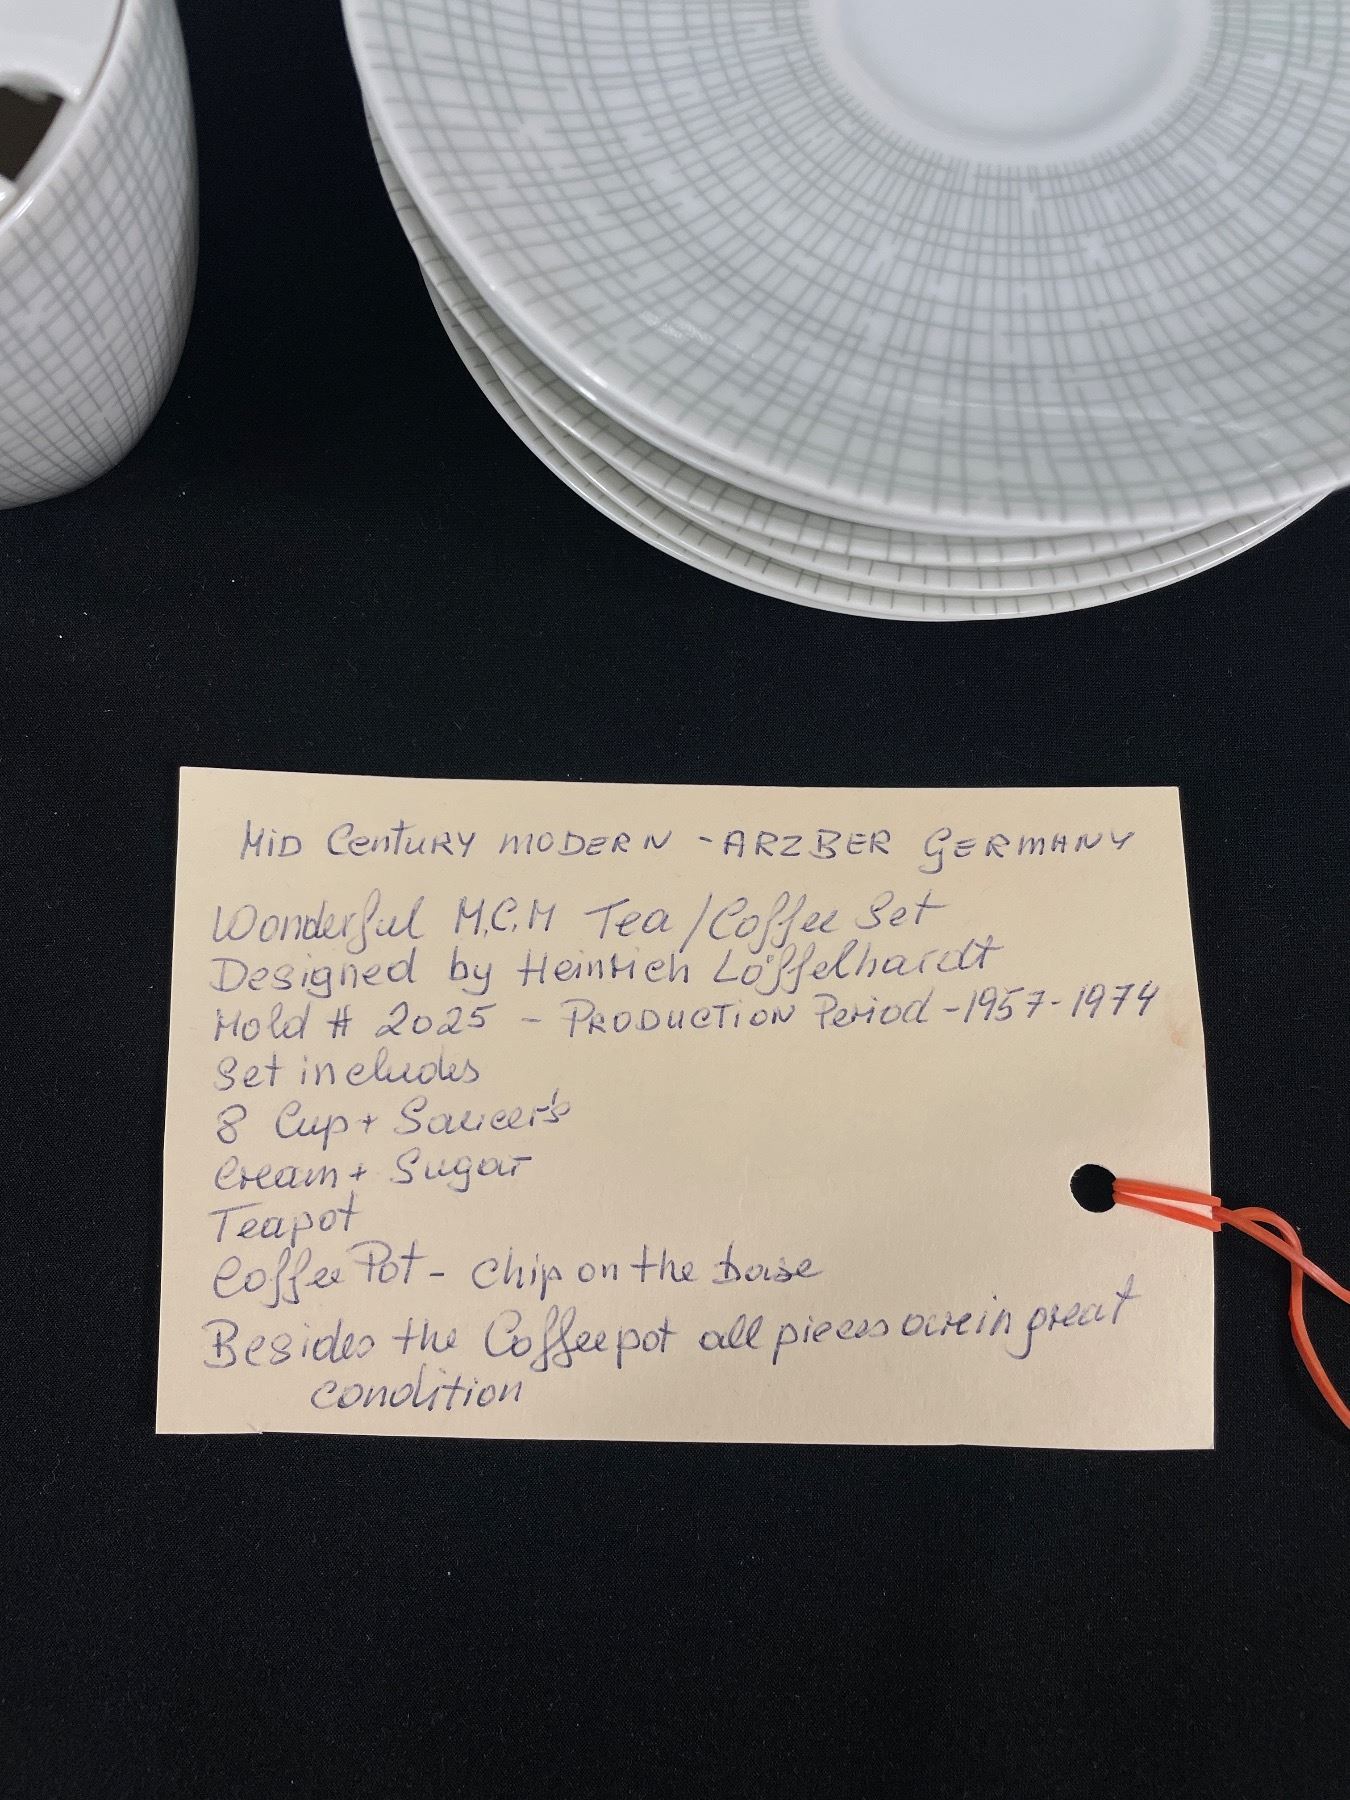 MiD CentURY MODERN - ARZBER GERMANY
Wonderful M.C.M Tea/Coffee Set
Designed by Heinrich Löffelhardt
Mold # 2025 - PRODUCTION Period - 1957-1974
Set includes
8 Cup + Saucer's
Cream + Sugar
Teapot
Coffee Pot - Chip on the base
Besides the Coffeepot all pieces are in great
condition